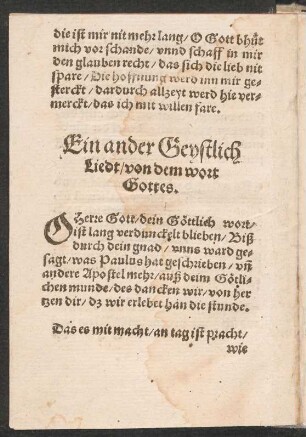 die ist mir nit mehr lang/ O Gott bhüt
mich vor schande/ vnnd schaff in mir
den glauben recht/ das sich die lieb nit
spare/ Die hoffnung werd inn mir ge-
sterckt/ dardurch allzeyt werd hie ver-
merckt/ das ich mit willen fare.
Ein ander Geystlich
Liedt/ von dem wort
Gottes.
O Herre Gott/ dein Göttlich wort/
ist lang verdunckelt blieben/ Biß
durch dein gnad/ vnns ward ge-
sagt/ was Paulus hat geschrieben/ vñ
andere Apostel mehr/ auß deim Götli-
chen munde/ des dancken wir/ von her
tzen dir/ dz wir erlebet han die stunde.
Das es mit macht/ an tag ist pracht/
wie